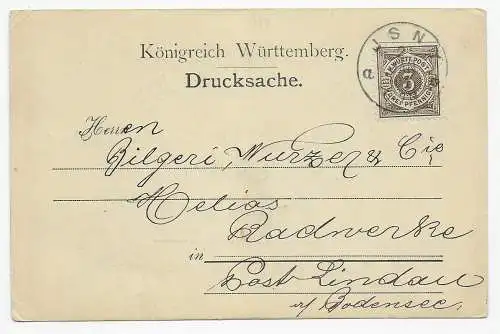 Königreich Württemberg.
Drucksache.
JSNY
a
K. WÜRTT. POST
3
DREI PFENNIG
Herren
Bilgeri, Wurzer & Cie
Helios
Radwerke
in Post Lindau
a/ Bodensee.